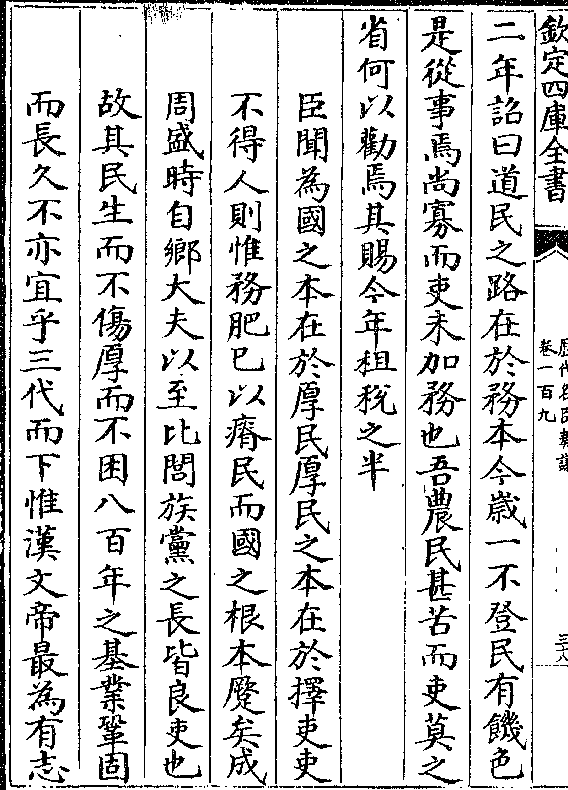 欽定四庫全書
歴代名臣奏議
卷一百九
三八
二年詔曰道民之路在於務本今歲一不登民有饑色
是從事焉尚寡而吏未加務也吾農民甚苦而吏莫之
省何以勸焉其賜今年租稅之半
臣聞為國之本在於厚民厚民之本在於擇吏吏
不得人則惟務肥已以瘠民而國之根本蹙矣成
周盛時自鄉大夫以至比閭族黨之長皆良吏也
故其民生而不傷厚而不困八百年之基業鞏固
而長久不亦宜乎三代而下惟漢文帝最為有志